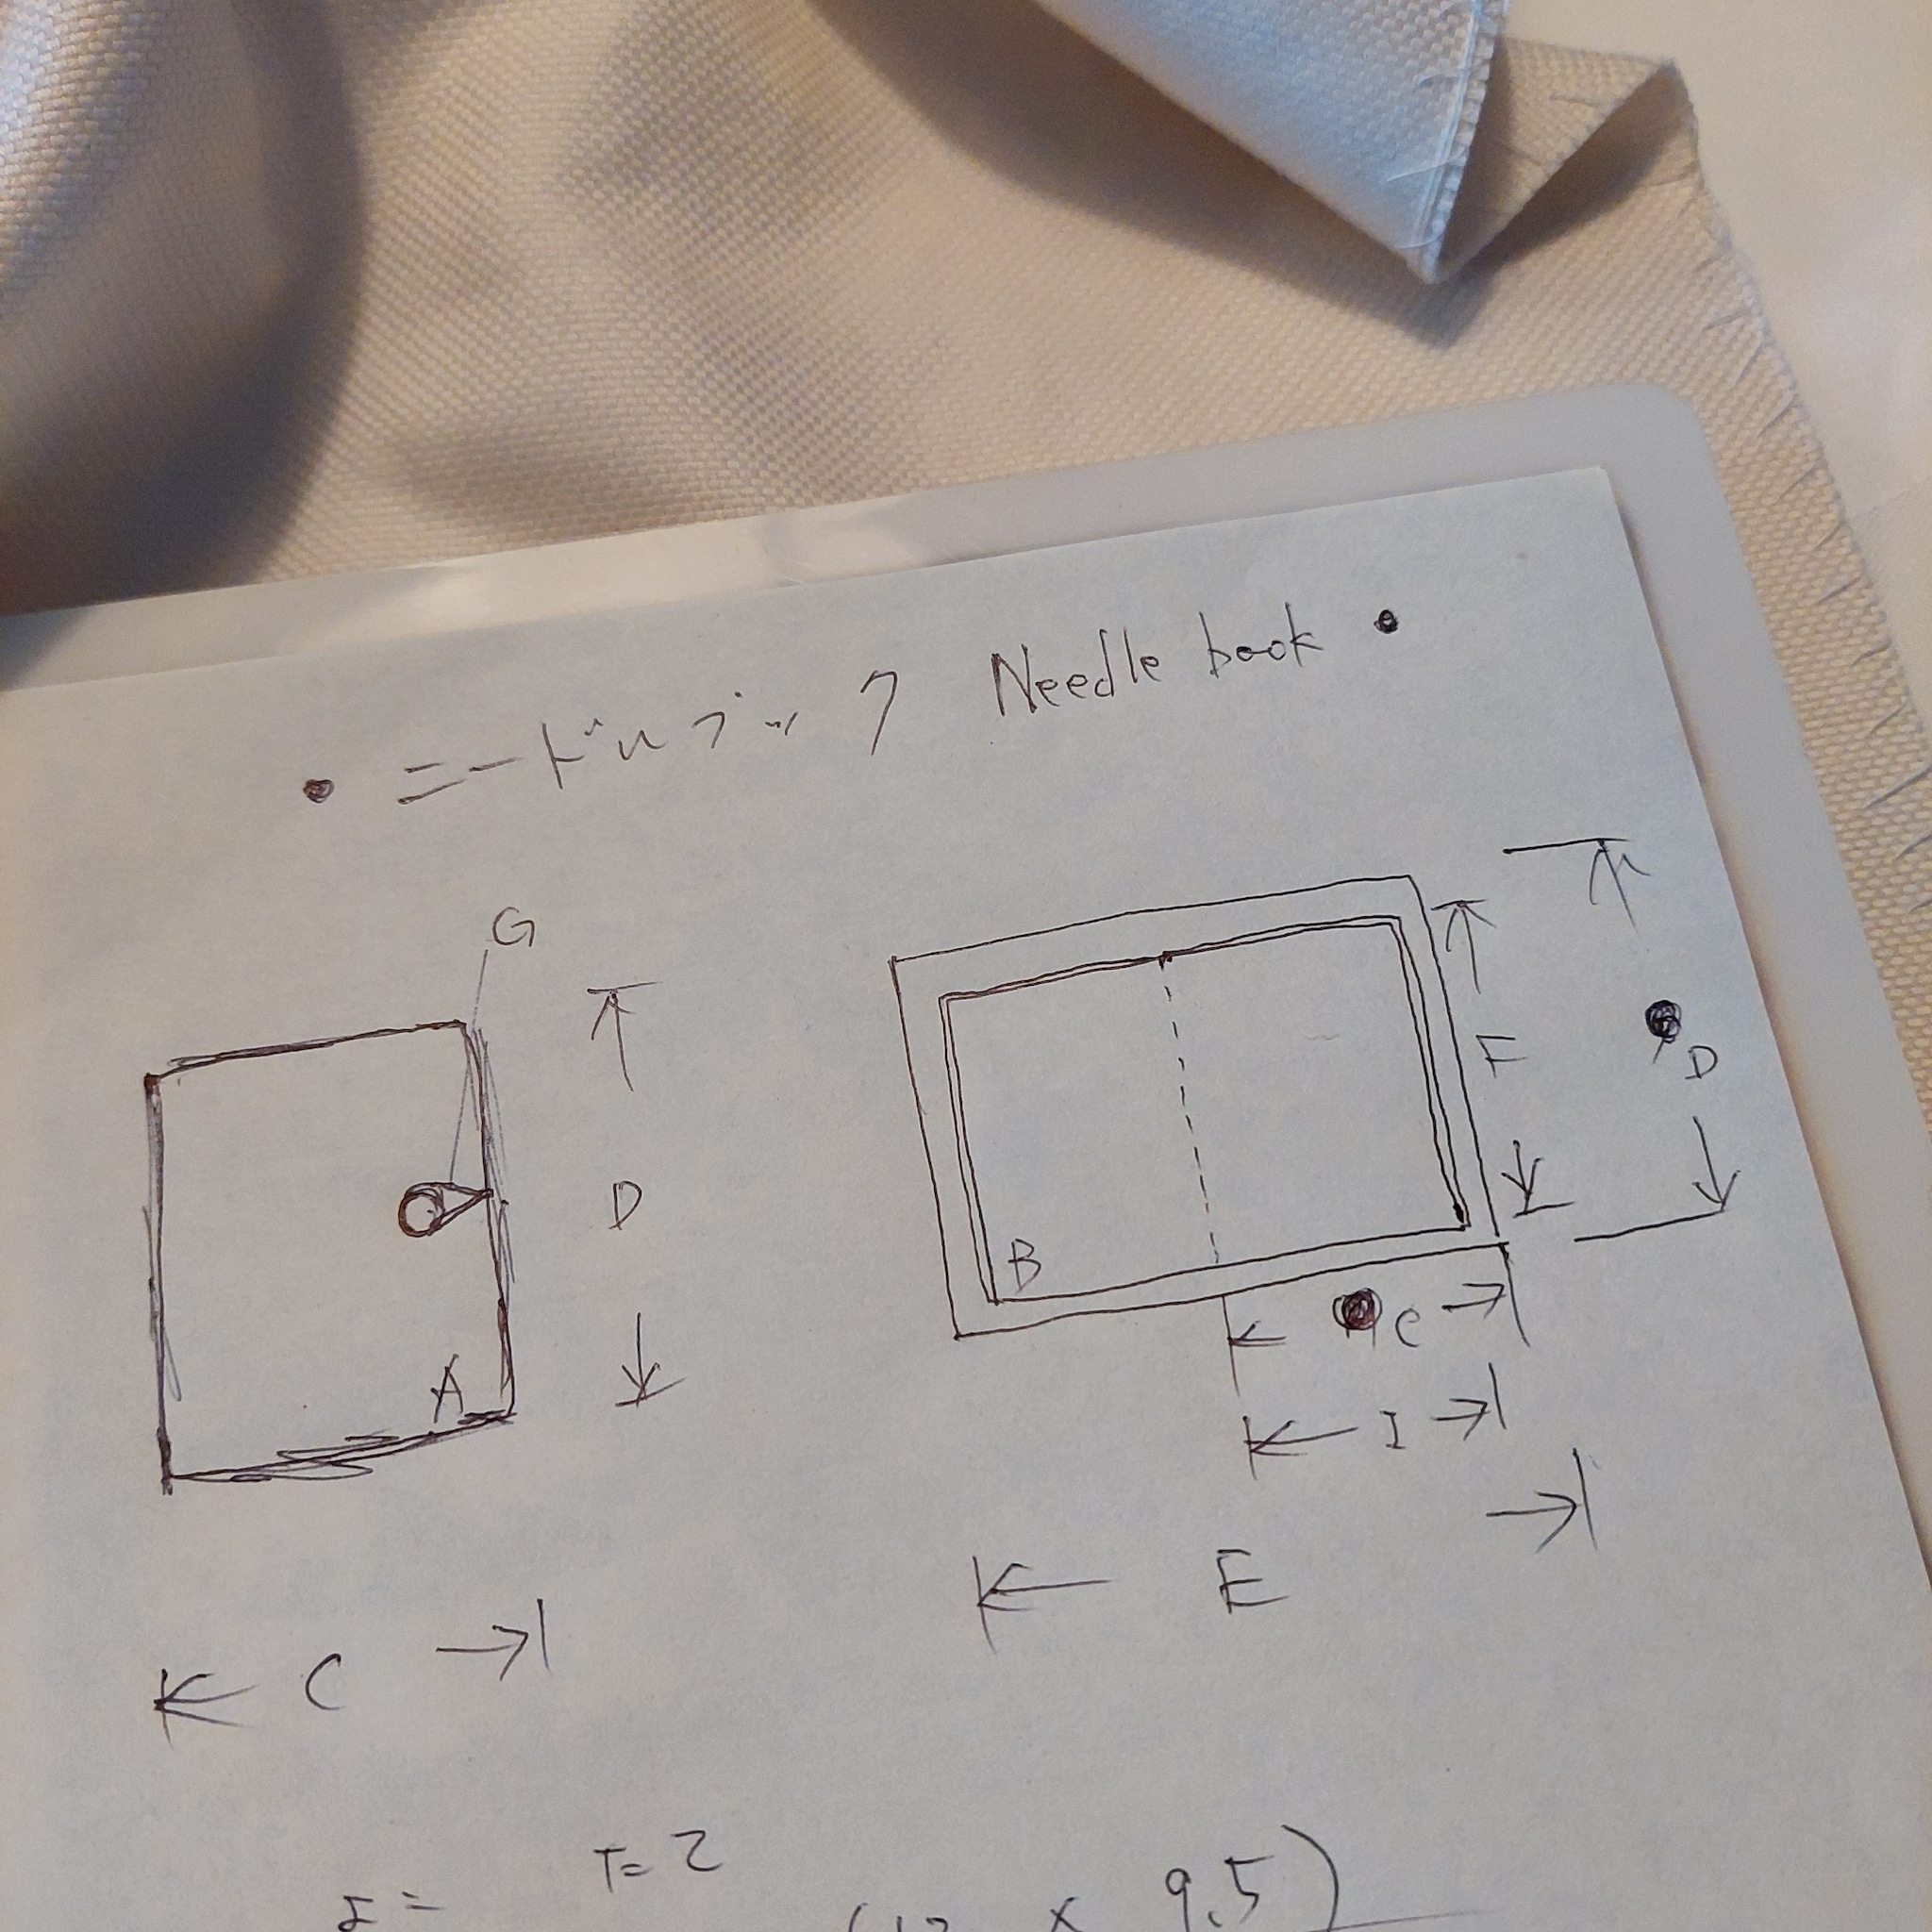 • ニードルブック Needle book •
G
D
A
C
B
F
D
C
I
E
T= 2
× 9.5)